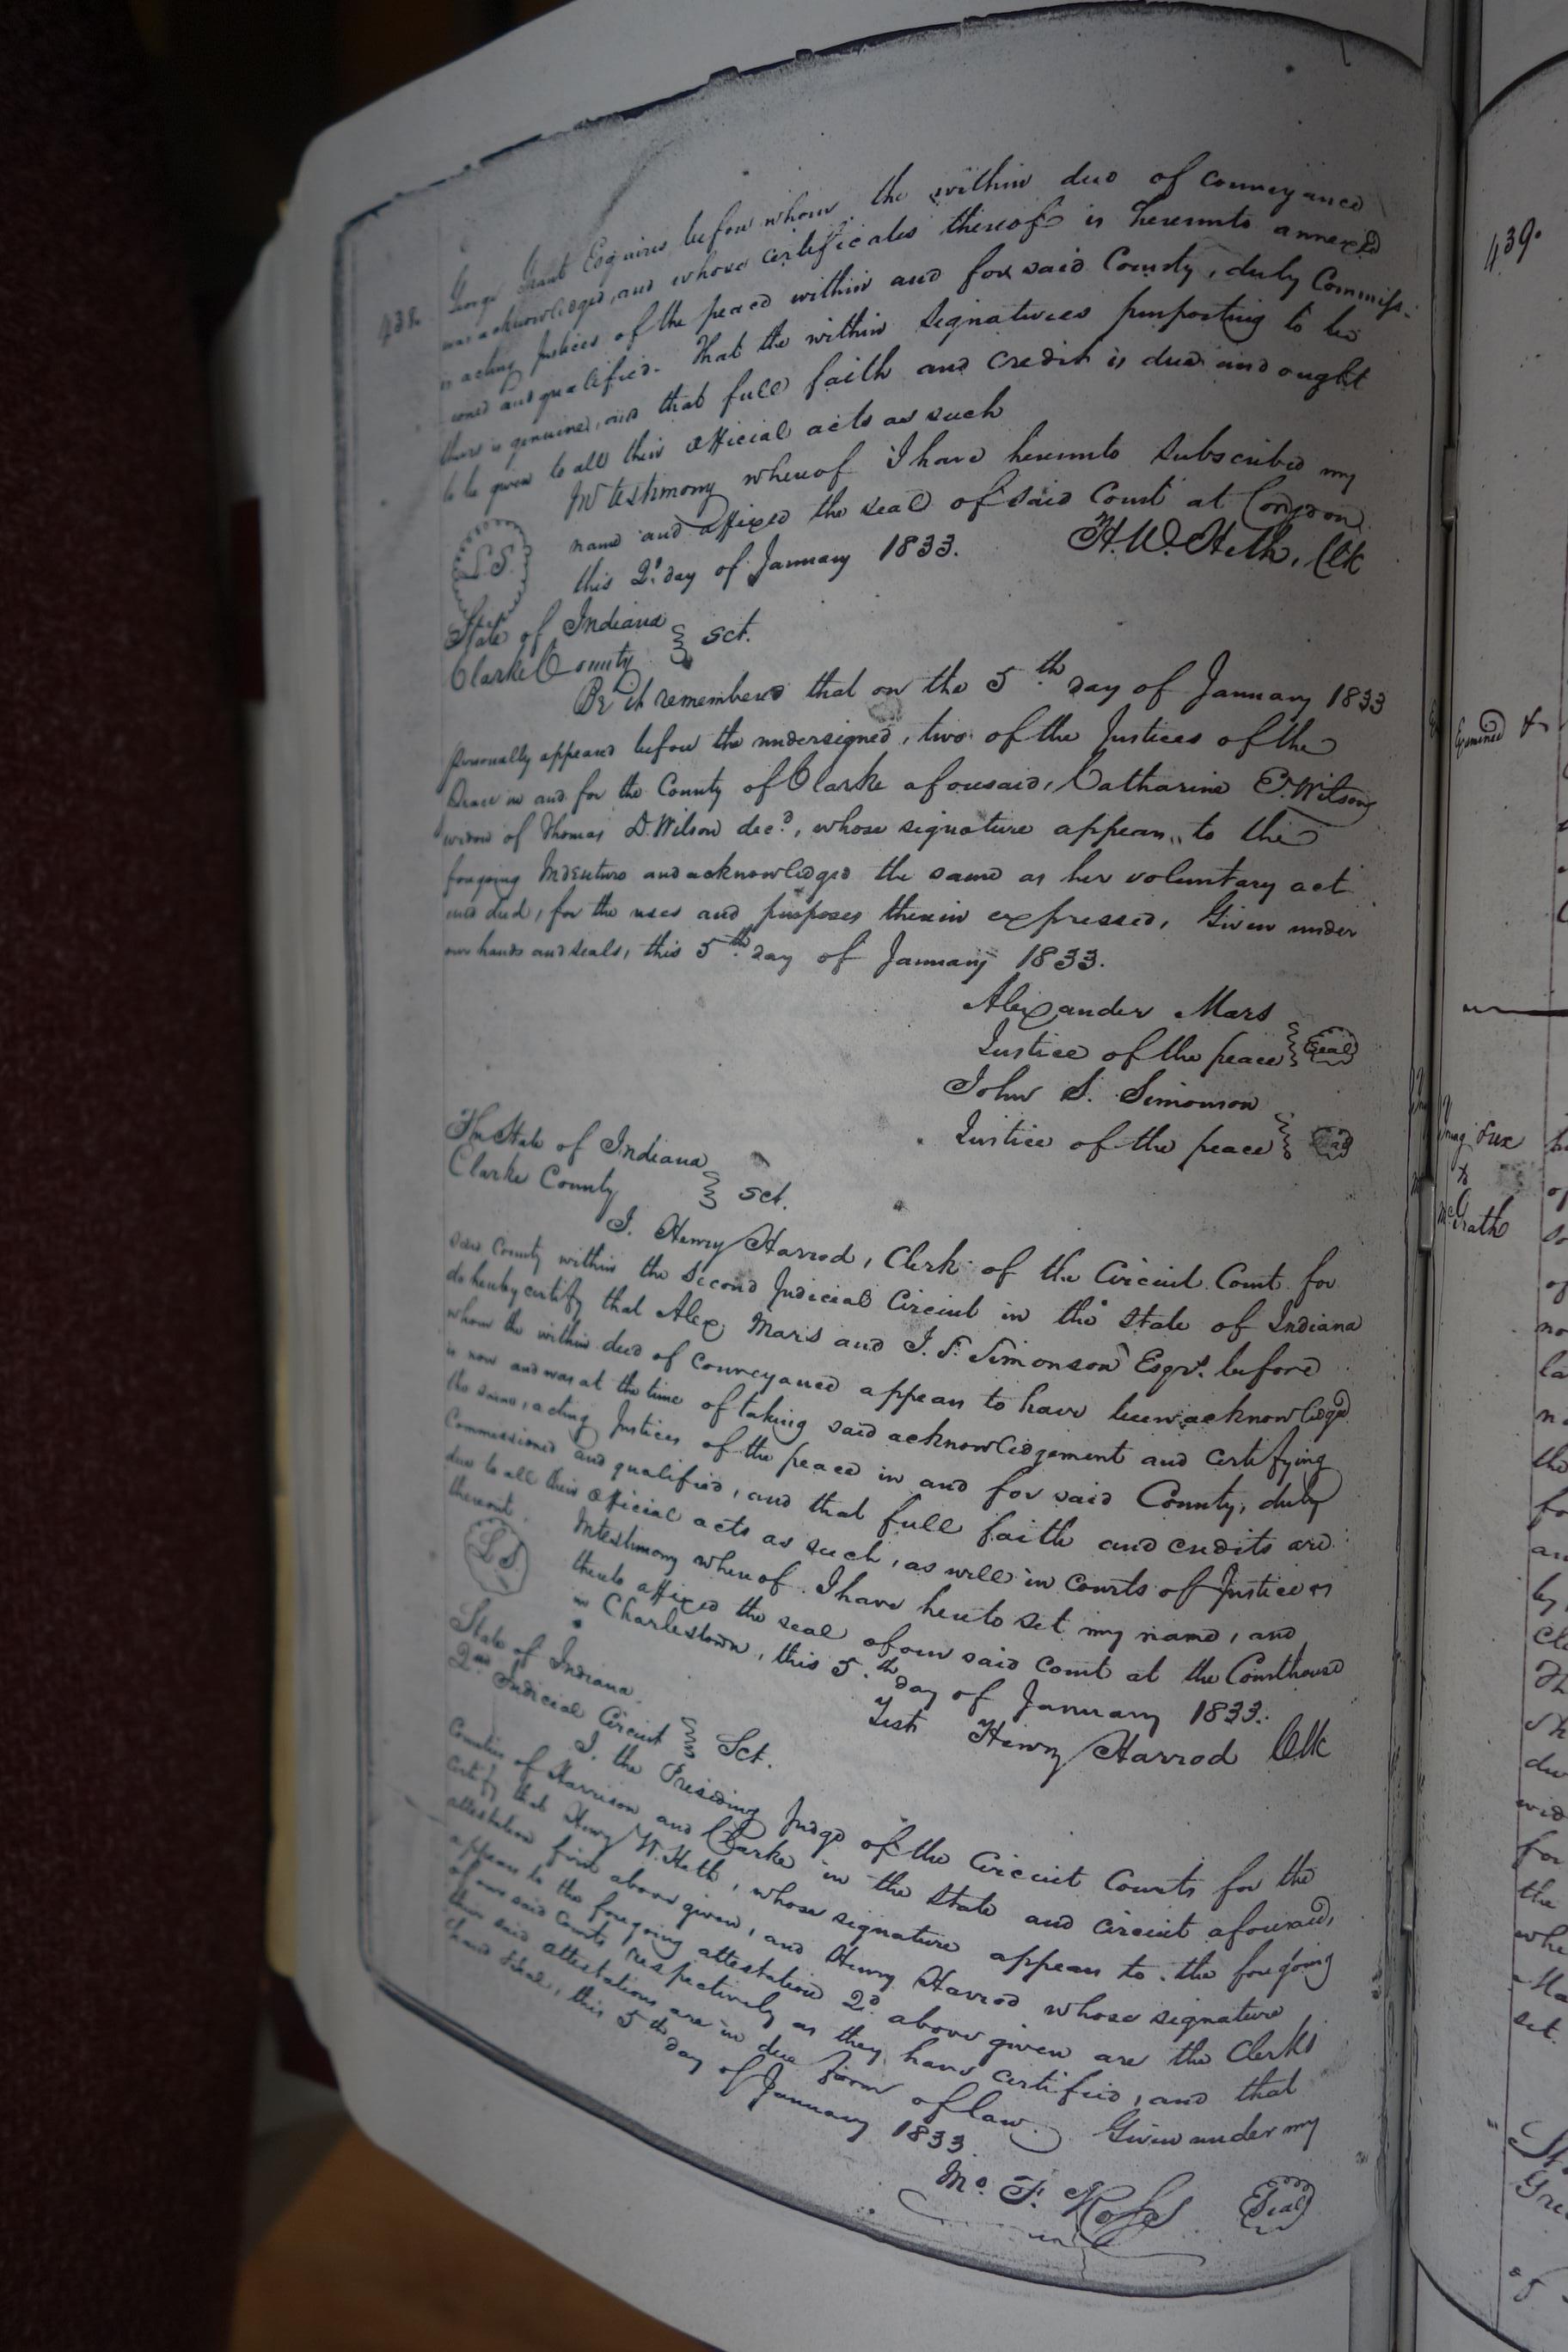 438.
George Grant Esquires before whom the within deed of conveyance
was acknowledged, and whose certificates thereof is hereunto annexed
is acting Justices of the peace within and for said County, duly Commiss-
ioned and qualified. That the within signatures purporting to be
theirs is genuine, and that full faith and credit is due and ought
to be given to all their official acts as such
In testimony whereof I have hereunto subscribed my
name and affixed the seal of said Court at Corydon
this 2d. day of January 1833.
H. W. Heth, Clk
L.S.
State of Indiana
Clarke County } sct.
Be it remembered that on the 5th day of January 1833
personally appeared before the undersigned, two of the Justices of the
Peace in and for the County of Clarke aforesaid, Catharine E. Wilson
widow of Thomas D. Wilson decd., whose signature appears to the
foregoing Indenture and acknowledged the same as her voluntary act
and deed, for the uses and purposes therein expressed, Given under
our hands and seals, this 5th day of January 1833.
Alexander Mars
Justice of the peace } Seal
John S. Simonson
Justice of the peace } Seal
The State of Indiana
Clarke County } sct.
I. Henry Harrod, Clerk of the Circuit Court for
said County within the Second Judicial Circuit in the State of Indiana
do hereby certify that Alex. Mars and J. S. Simonson Esqrs. before
whom the within deed of conveyance appears to have been acknowledged
is now and was at the time of taking said acknowledgement and certifying
the same, acting Justices of the peace in and for said County, duly
Commissioned and qualified, and that full faith and credits are
due to all their official acts as such, as well in Courts of Justice as
thereout.
L.S.
In testimony whereof I have hereto set my name, and
thereto affixed the seal of our said Court at the Courthouse
in Charlestown, this 5th day of January 1833.
Test Henry Harrod Clk
State of Indiana
2nd Judicial Circuit } Sct.
I. the Presiding Judge of the Circuit Courts for the
Counties of Harrison and Clarke in the State and circuit aforesaid,
Certify that Henry W. Heth, whose signature appears to the foregoing
attestation first above given, and Henry Harrod whose signature
appears to the foregoing attestation 2d. above given are the Clerks
of our said Courts respectively as they have certified, and that
their said attestations are in due form of law. Given under my
hand & seal, this 5th day of January 1833
Seal
439.
Examined &
to
McGrath